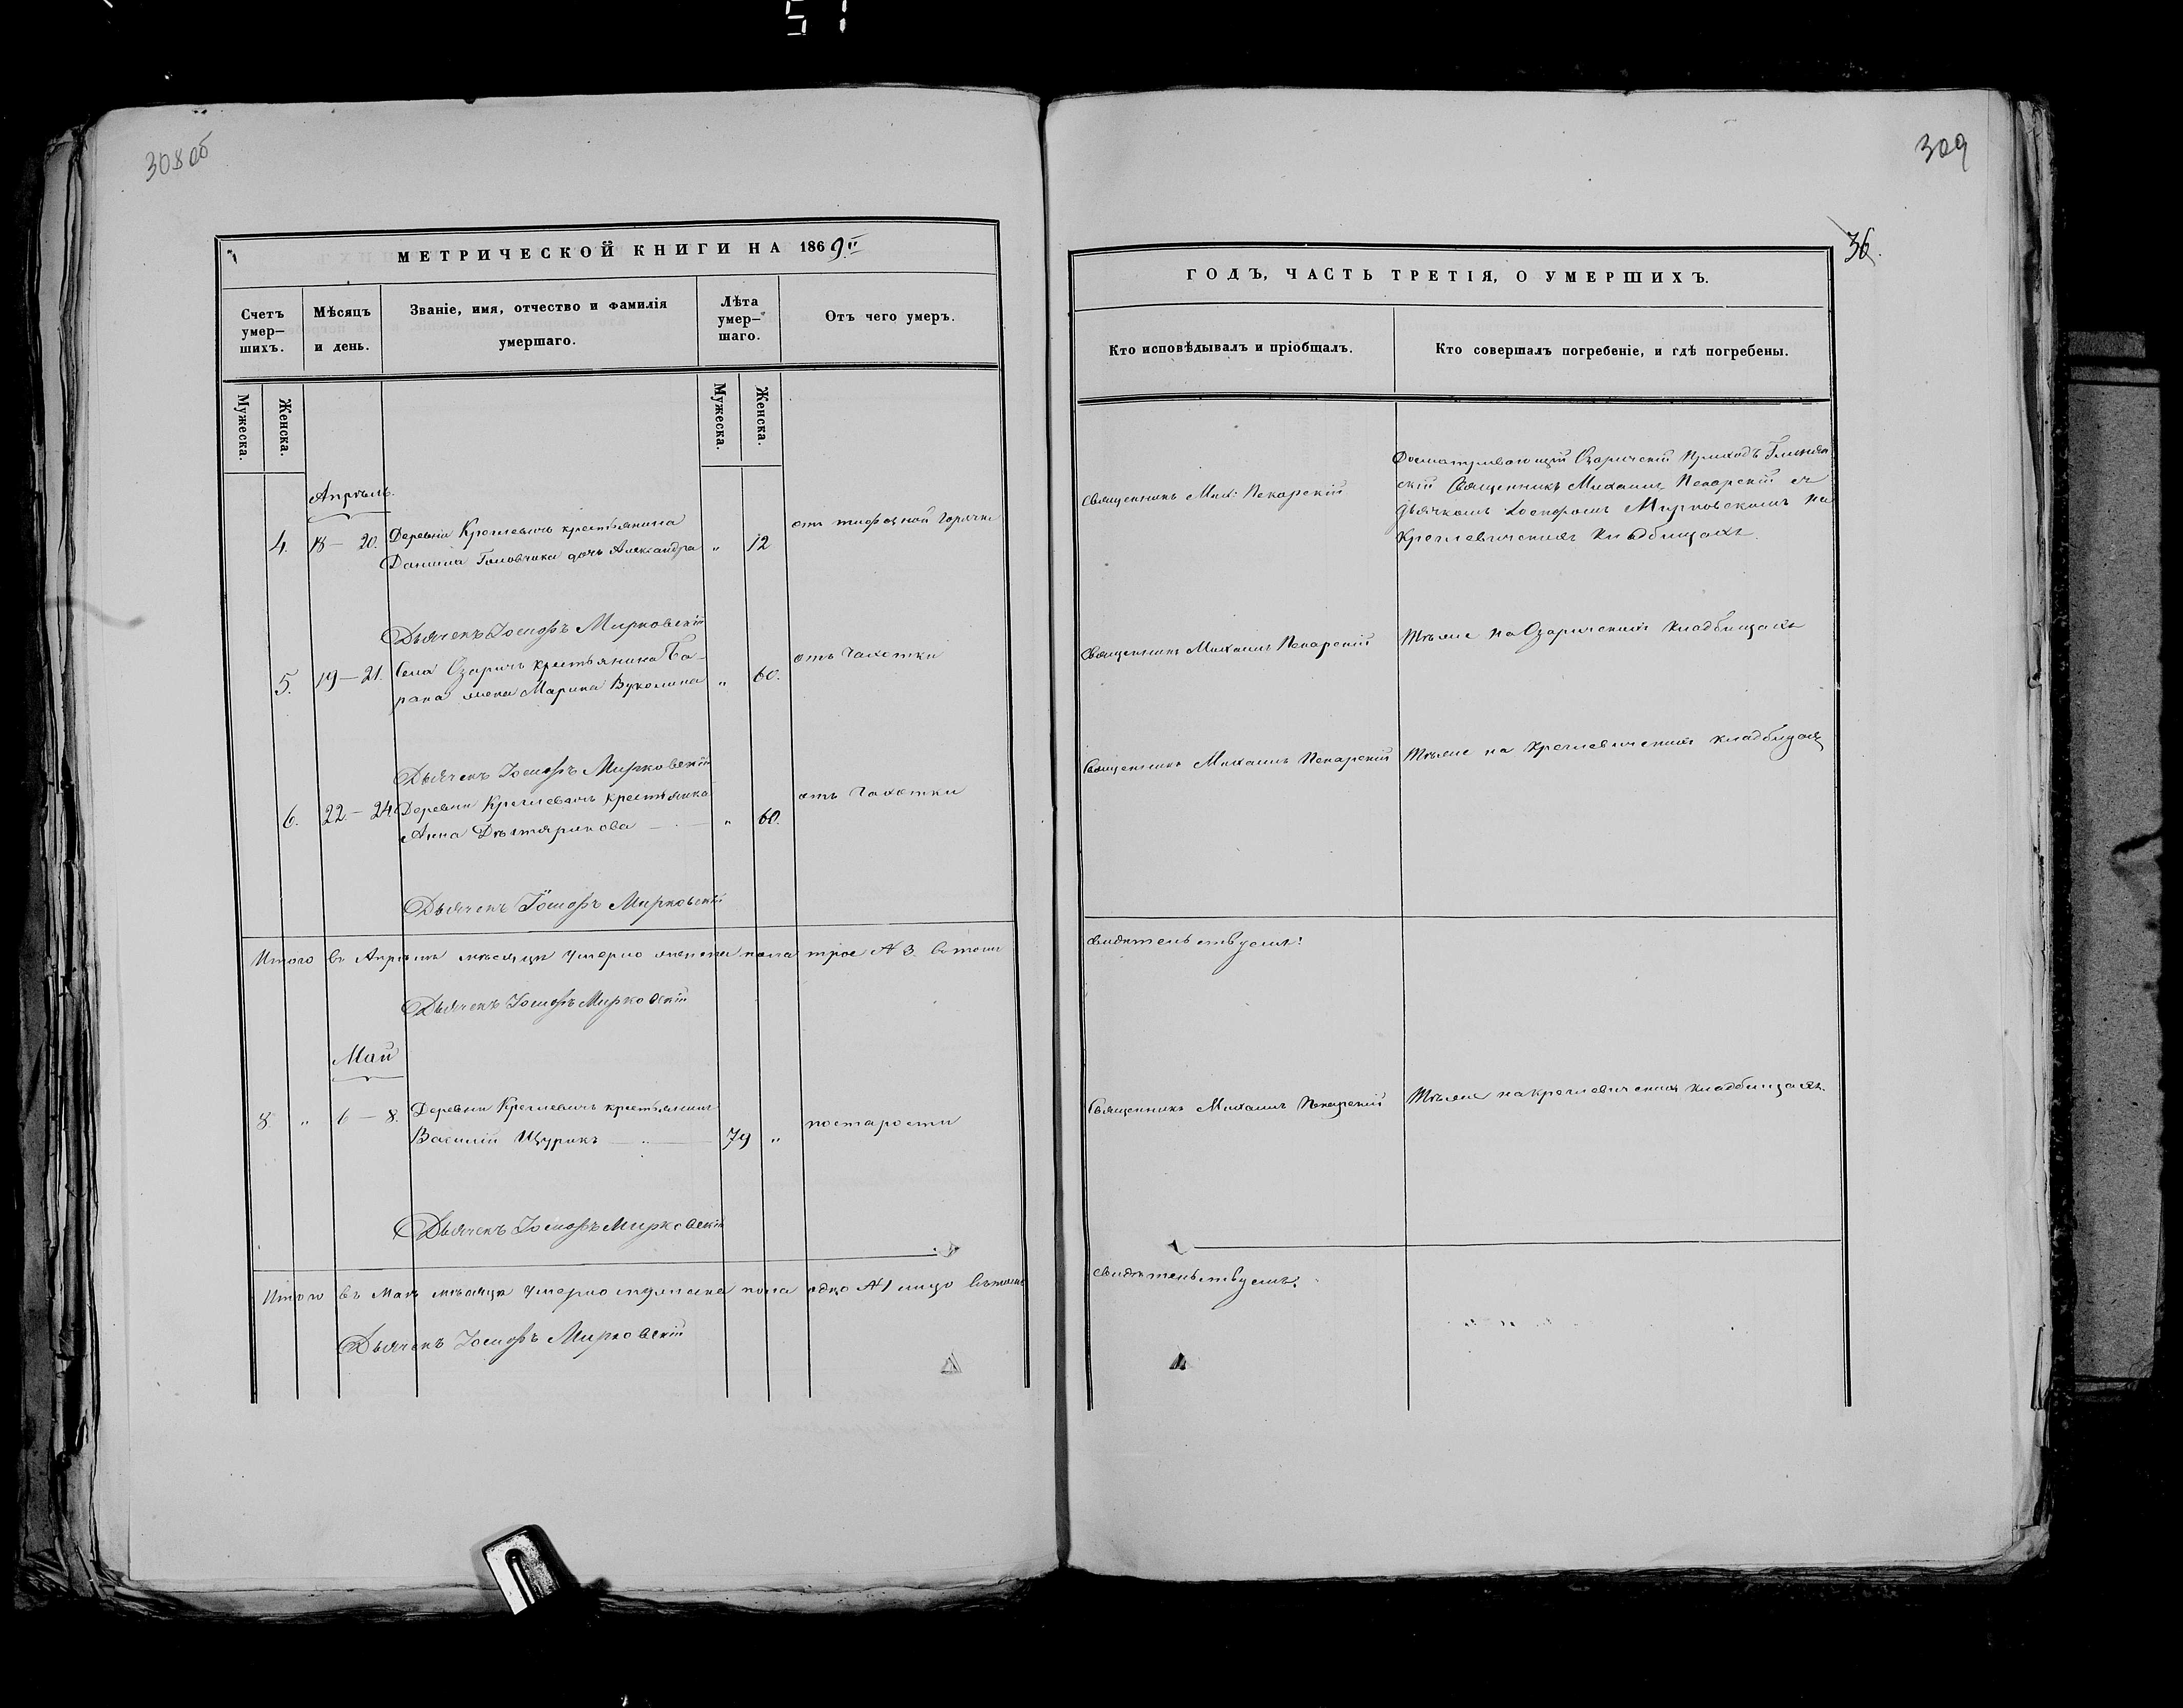 51
308 об
309
36.
МЕТРИЧЕСКОЙ КНИГИ НА 1869й
Счетъ умер–шихъ.
Мѣсяцъ и день.
Званіе, имя, отчество и фамилія умершаго.
Лѣта умер–шаго.
Отъ чего умеръ.
Мужеска.
Женска.
Мужеска.
Женска.
Апрѣль.
4. 18 — 20. Деревни Кроглевичъ крестьянина
Данiила Головчика дочь Александра „ 12
отъ тифозной горячки
Дьячекъ Іосифъ Мирковскій
5. 19 — 21. Села Озаричъ крестьянина Ба-
рана жена Марина Вуколина „ 60.
отъ чахотки
Дьячекъ Іосифъ Мирковскій
6. 22 — 24. Деревни Кроглевичъ крестьянка
Анна „ 60.
отъ чахотки
Дьячекъ Іосифъ Мирковскій
Итого въ Апрѣлѣ мѣсяцѣ умерло женска пола трое № 3. въ томъ
Дьячекъ Іосифъ Мирковскій
Май
8. „ 6 — 8. Деревни Кроглевичъ крестьянинъ
Василій Щурикъ — „ — 79 „
по старости
Дьячекъ Іосифъ Мирковскій
Итого въ Маѣ мѣсяцѣ умерло мужеска пола одно № 1 лицо въ томъ
Дьячекъ Іосифъ Мирковскій
ГОДЪ, ЧАСТЬ ТРЕТІЯ, О УМЕРШИХЪ.
Кто исповѣдывалъ и пріобщалъ.
Кто совершалъ погребеніе, и гдѣ погребены.
Священникъ Мих: Пекарскій
Досматривающій Озаричскій приходъ Глинян
скій Священникъ Михаилъ Пекарскій съ
дьячкомъ Іосифомъ Мирковскимъ на
Кроглевичскихъ кладбищахъ.
Священникъ Михаилъ Пекарскій
Тѣже на Озаричскихъ кладбищахъ
Священникъ Михаилъ Пекарскій
Тѣже на Кроглевичскихъ кладбищахъ
свидѣтельствуемъ:
Священникъ Михаилъ Пекарскій
Тѣже на Кроглевичскихъ кладбищахъ.
свидѣтельствуемъ: